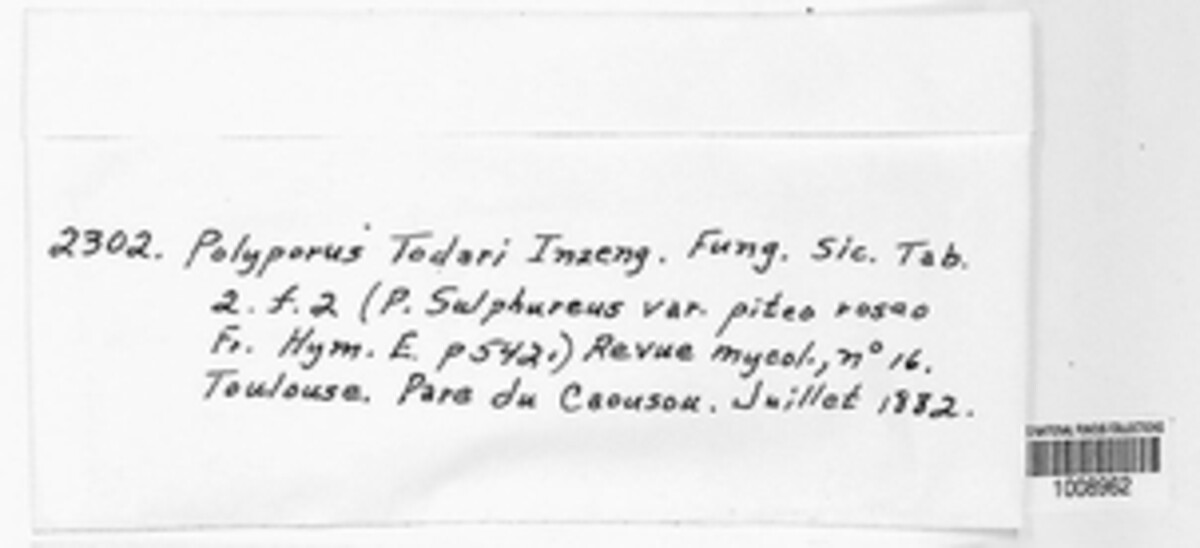 2302. Polyporus Todari Inzeng. Fung. Sic. Tab.
2. f. 2 (P. Sulphureus var. piteo roseo
Fr. Hym. E. p 542.) Revue mycol., nº 16.
Toulouse. Parc du Caousou. Juillet 1882.
US NATIONAL FUNGUS COLLECTIONS
1008962